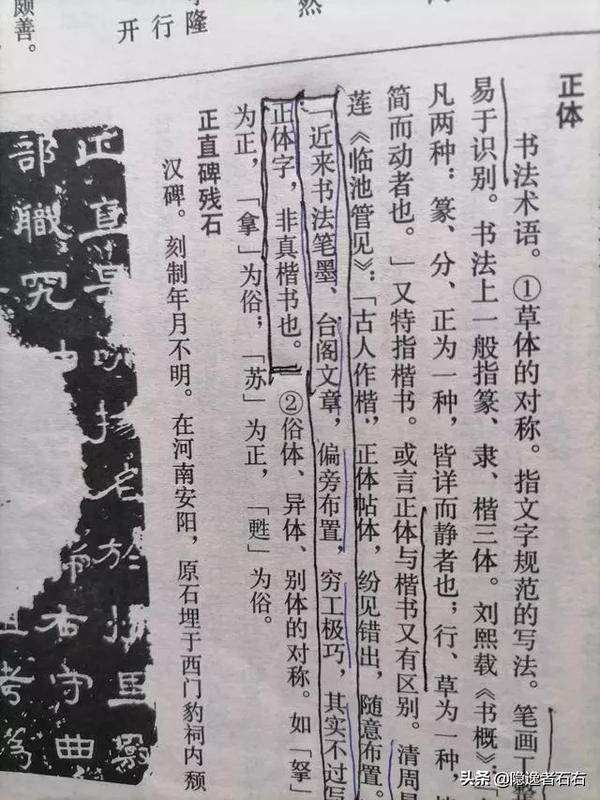 然
隆
行
开
颇善。
正体
书法术语。①草体的对称。指文字规范的写法。笔画工整
易于识别。书法上一般指篆、隶、楷三体。刘熙载《书概》：「
凡两种：篆、分、正为一种，皆详而静者也；行、草为一种，
简而动者也。」又特指楷书。或言正体与楷书又有区别。清周
莲《临池管见》：「古人作楷，正体帖体，纷见错出，随意布置。
「近来书法笔墨、台阁文章，偏旁布置，穷工极巧，其实不过写
正体字，非真楷书也。②俗体、异体、别体的对称。如「拏」
为正，「拿」为俗；「苏」为正，「甦」为俗。
正直碑残石
汉碑。刻制年月不明。在河南安阳，原石埋于西门豹祠内颓
正直是以揚名於州里
部職究
右守曲
考為
头条 @隐逸者石右